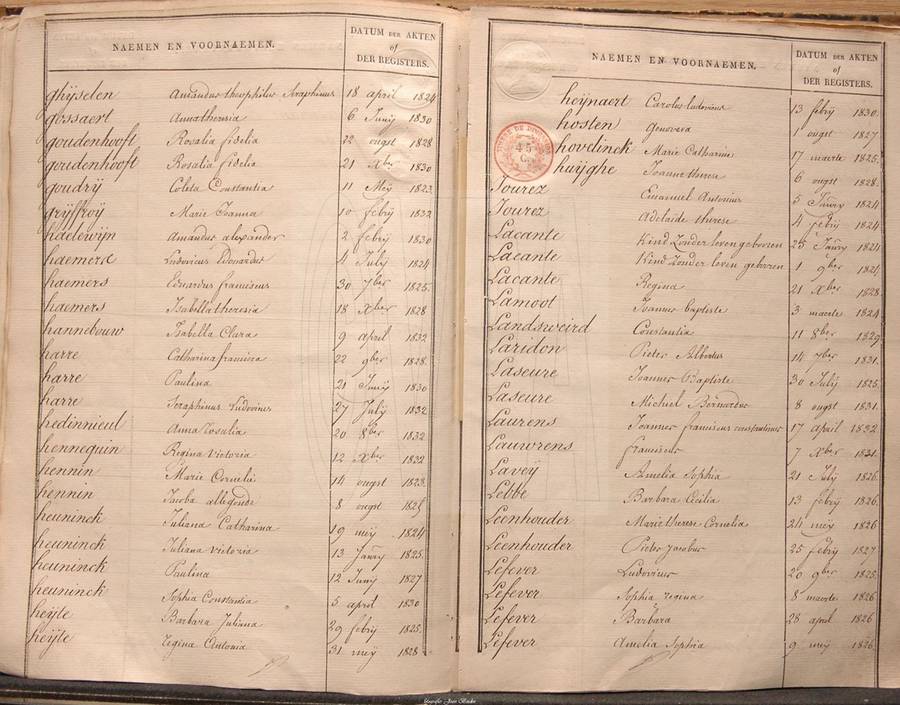 NAEMEN EN VOORNAEMEN. DATUM DER AKTEN
of
DER REGISTERS.
ghijselen Amandus theophilus Seraphinus 18 april 1824
gossaert Anna theresia 6 Junij 1830
goudenhooft Rosalia fidelia 22 ougst 1828
goudenhooft Rosalia fidelia 21 Xber 1830
goudrij Coleta Constantia 11 Meij 1823
grijffroij Marie Joanna 10 febrij 1832
haelewijn Amandus alexander 2 febrij 1830
haemerd Ludovicus Edouardus 4 July 1824
haemers Eduardus franciscus 30 7ber 1825
haemers Isabella theresia 18 Xber 1828
hannebouw Isabella Clara 9 april 1832
harre Catharina francisca 22 9ber 1828
harre Paulina 21 Junij 1830
harre Seraphinus Ludovicus 27 July 1832
hedinnieul Anna rosalia 20 8ber 1832
hennequin Regina victoria 12 Xber 1832
hennin Marie Cornelie 14 ougst 1823
hennin Jacoba aldegonde 8 ougst
heuninck Juliana Catharina 19 meij 1824
heuninck Juliana victoria 13 Janrij 1825
heuninck Paulina 12 Junij 1827
heuninck Sophia Constantia 5 april 1830
heijte Barbara Juliana 29 febrij 1825
heijte regina Antonia 31 meij 1828
NAEMEN EN VOORNAEMEN. DATUM DER AKTEN
of
DER REGISTERS.
heijnaert Carolus ludovicus 13 febrij 1830
hosten Genoveva 1 ougst 1827
hovelinck Marie Catharine 17 maerte 1825
huijghe Joanne therese 6 ougst 1828
45
C.
Jourez Emanuel Antonius 5 Janrij 1824
Jourez Adelaide therese 4 febrij 1824
Lacante Kind Zonder leven geboren 25 Janrij 1824
Lacante Kind Zonder leven geboren 1 9ber 1824
Lacante Regina 21 Xber 1828
Lamoot Joannes baptiste 3 maerte 1824
Landsweird Constantia 11 8ber 1829
Laridon Pieter Albertus 14 7ber 1831
Laseure Joannes Baptiste 30 July 1825
Laseure Michiel Bernardus 8 ougst 1831
Laurens Joannes franciscus constantinus 17 april 1832
Lauwrens franciscus 7 Xber 1831
Laveij Amelia Sophia 21 July 1826
Lebbe Barbara Cecilia 13 febrij 1826
Leenhouder Marie therese Cornelia 24 meij 1826
Leenhouder Pieter Jacobus 25 febrij 1827
Lefever Ludovicus 20 9ber 1825
Lefever Sophia regina 8 maerte 1826
Lefever Barbara 28 april 1826
Lefever Amelia Sophia 9 meij 1826